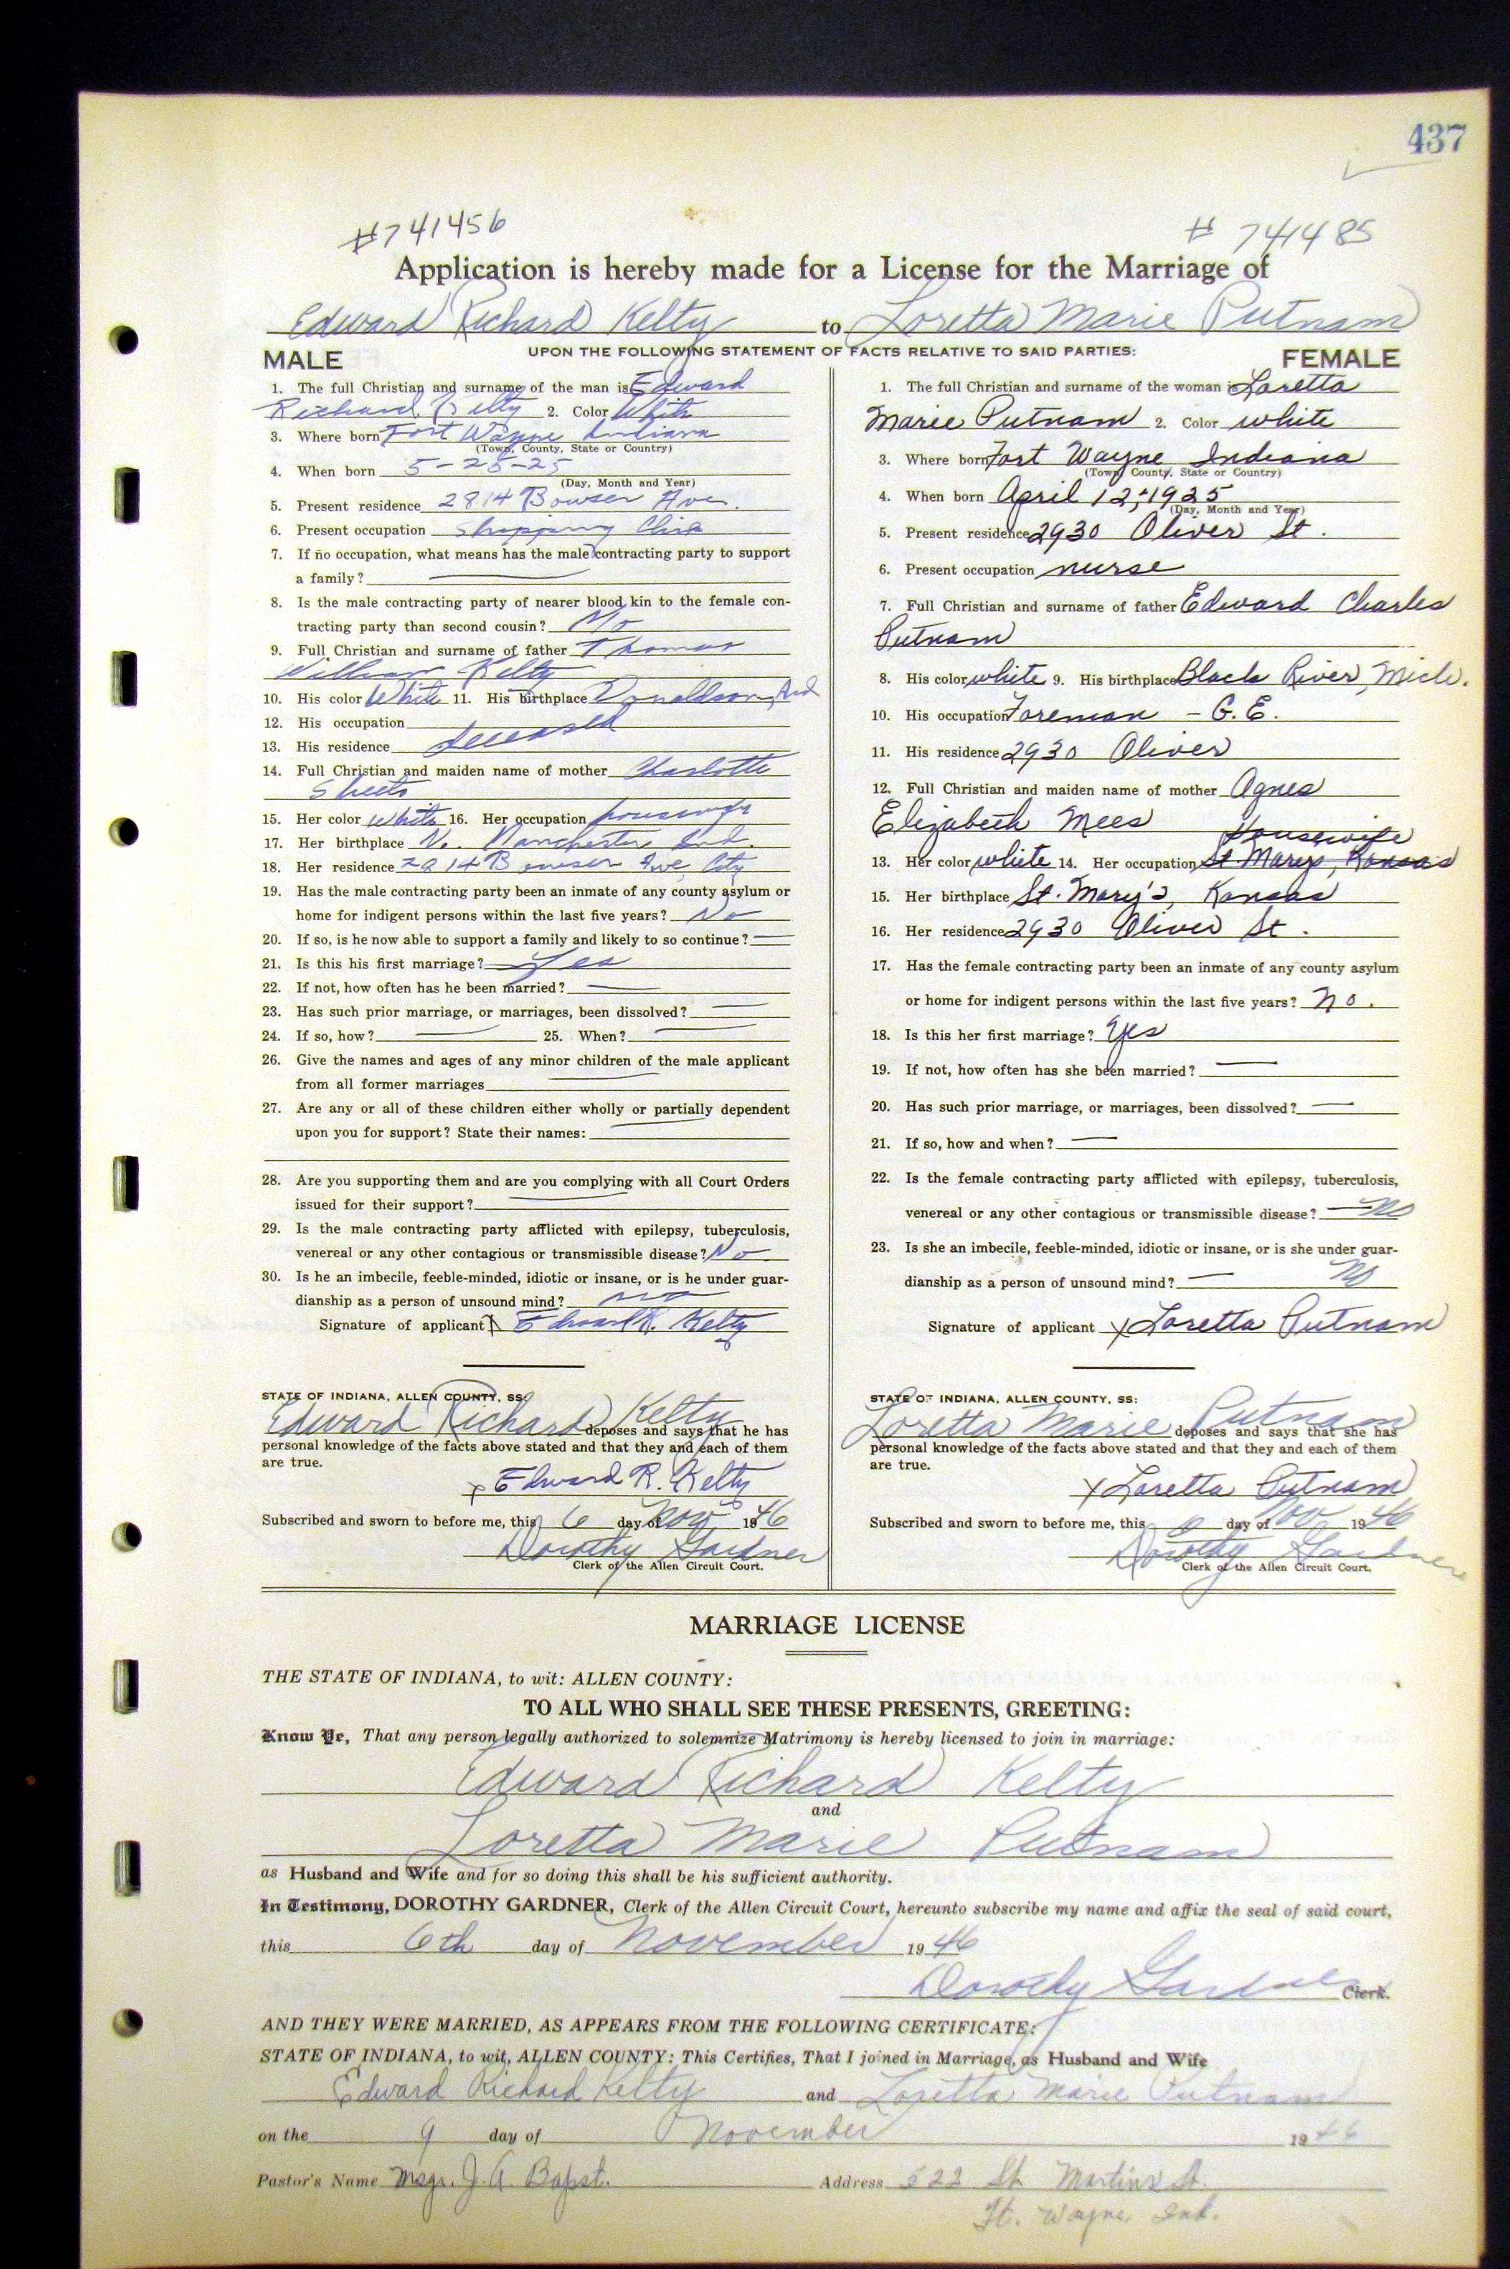 437
#741456
# 741485
Application is hereby made for a License for the Marriage of
Edward Richard Kelty to Loretta Marie Putnam
MALE UPON THE FOLLOWING STATEMENT OF FACTS RELATIVE TO SAID PARTIES: FEMALE
1. The full Christian and surname of the man is Edward
Richard Kelty 2. Color White
3. Where born Fort Wayne Indiana
(Town, County, State or Country)
4. When born 5-25-25
(Day, Month and Year)
5. Present residence 2814 Bowser Ave.
6. Present occupation Shipping
7. If no occupation, what means has the male contracting party to support
a family?
8. Is the male contracting party of nearer blood kin to the female con-
tracting party than second cousin? No
9. Full Christian and surname of father Thomas
William Kelty
10. His color White 11. His birthplace Donaldson, Ind
12. His occupation
13. His residence deceased
14. Full Christian and maiden name of mother Charlotte
Sheets
15. Her color White 16. Her occupation housewife
17. Her birthplace N. Manchester Ind.
18. Her residence 2814 Bowser Ave, City
19. Has the male contracting party been an inmate of any county asylum or
home for indigent persons within the last five years? No
20. If so, is he now able to support a family and likely to so continue?
21. Is this his first marriage? Yes
22. If not, how often has he been married?
23. Has such prior marriage, or marriages, been dissolved?
24. If so, how? 25. When?
26. Give the names and ages of any minor children of the male applicant
from all former marriages
27. Are any or all of these children either wholly or partially dependent
upon you for support? State their names:
28. Are you supporting them and are you complying with all Court Orders
issued for their support?
29. Is the male contracting party afflicted with epilepsy, tuberculosis,
venereal or any other contagious or transmissible disease? No
30. Is he an imbecile, feeble-minded, idiotic or insane, or is he under guar-
dianship as a person of unsound mind? no
Signature of applicant X Edward R. Kelty
STATE OF INDIANA, ALLEN COUNTY, SS:
Edward Richard Kelty deposes and says that he has
personal knowledge of the facts above stated and that they and each of them
are true.
x Edward R. Kelty
Subscribed and sworn to before me, this 6 day of Nov 1946
Dorothy Gardner
Clerk of the Allen Circuit Court.
1. The full Christian and surname of the woman is Loretta
Marie Putnam 2. Color white
3. Where born Fort Wayne Indiana
(Town, County, State or Country)
4. When born April 12, 1925
(Day, Month and Year)
5. Present residence 2930 Oliver St.
6. Present occupation nurse
7. Full Christian and surname of father Edward Charles
Putnam
8. His color white 9. His birthplace Black River, Mich.
10. His occupation Foreman - G.E.
11. His residence 2930 Oliver
12. Full Christian and maiden name of mother Agnes
Elizabeth Mees
Housewife
13. Her color white 14. Her occupation St Marys, Kansas
15. Her birthplace St. Mary's, Kansas
16. Her residence 2930 Oliver St.
17. Has the female contracting party been an inmate of any county asylum
or home for indigent persons within the last five years? no.
18. Is this her first marriage? Yes
19. If not, how often has she been married?
20. Has such prior marriage, or marriages, been dissolved?
21. If so, how and when?
22. Is the female contracting party afflicted with epilepsy, tuberculosis,
venereal or any other contagious or transmissible disease? No
23. Is she an imbecile, feeble-minded, idiotic or insane, or is she under guar-
dianship as a person of unsound mind? No
Signature of applicant x Loretta Putnam
STATE OF INDIANA, ALLEN COUNTY, SS:
Loretta Marie Putnam deposes and says that she has
personal knowledge of the facts above stated and that they and each of them
are true.
x Loretta Putnam
Subscribed and sworn to before me, this 6 day of Nov 1946
Dorothy Gardner
Clerk of the Allen Circuit Court.
MARRIAGE LICENSE
THE STATE OF INDIANA, to wit: ALLEN COUNTY:
TO ALL WHO SHALL SEE THESE PRESENTS, GREETING:
Know Ye, That any person legally authorized to solemnize Matrimony is hereby licensed to join in marriage:
Edward Richard Kelty
and
Loretta Marie Putnam
as Husband and Wife and for so doing this shall be his sufficient authority.
In Testimony, DOROTHY GARDNER, Clerk of the Allen Circuit Court, hereunto subscribe my name and affix the seal of said court,
this 6th day of November 1946
Dorothy Gardner Clerk.
AND THEY WERE MARRIED, AS APPEARS FROM THE FOLLOWING CERTIFICATE:
STATE OF INDIANA, to wit, ALLEN COUNTY: This Certifies, That I joined in Marriage, as Husband and Wife
Edward Richard Kelty and Loretta Marie Putnam
on the 9 day of November 1946
Pastor's Name Msgr. J. A. Bapst. Address 522 St Martins St.
Ft. Wayne, Ind.